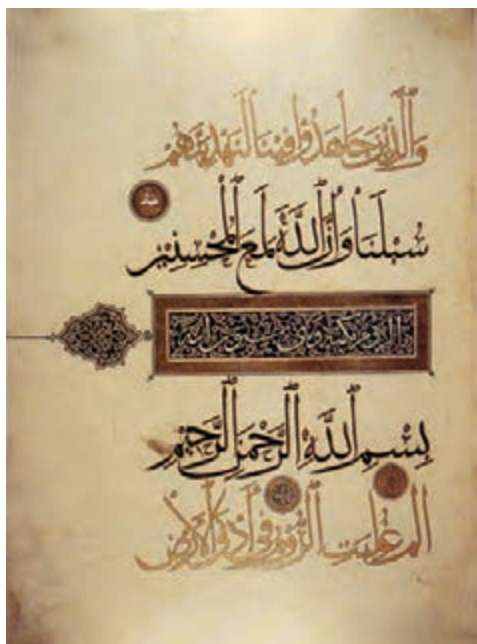 وَالَّذِينَ جَاهَدُوا فِينَا لَنَهْدِيَنَّهُمْ
سُبُلَنَا وَإِنَّ اللَّهَ لَمَعَ الْمُحْسِنِينَ
الروم مكية وهي ستون آية
بِسْمِ اللَّهِ الرَّحْمَنِ الرَّحِيمِ
الم غُلِبَتِ الرُّومُ فِي أَدْنَى الْأَرْضِ